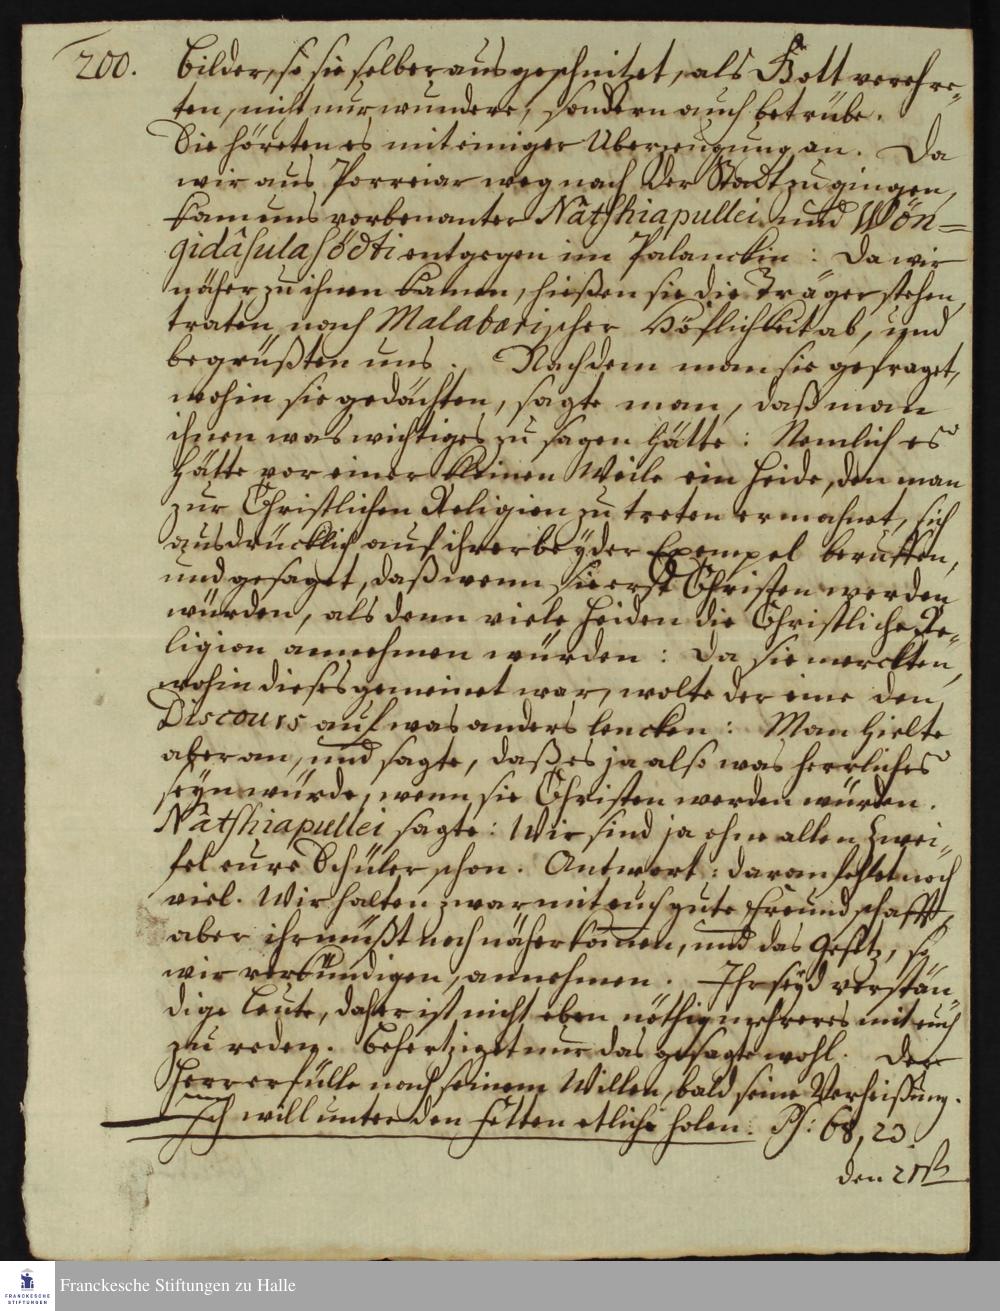 200. Bilder, so sie selber ausgeschnitzet, als Gott verehre-
ten, nicht nur wundere, sondern auch betrübe.
Sie höreten es mit einiger Uberzeugung an. Da
wir aus Porreiar weg nach der Stadt zu gingen,
kam uns vorbenanter Nâtshiapullei und Wön=
gidâsulasödti entgegen im Palanckin: Da wir
näher zu ihnen kamen, hießen sie die Träger stehen,
traten nach Malabarischer Höflichkeit ab, und
begrüßten uns. Nachdem man sie gefraget,
wohin sie gedächten, sagte man, daß man
ihnen was wichtiges zu sagen hätte: Nemlich es
hätte vor einer kleinen Weile ein Heide, den man
zur Christlichen Religion zu treten ermahnet, sich
ausdrücklich auf ihrer beyder Exempel beruffen,
und gesaget, daß wenn sie erst Christen werden
würden, als denn viele Heiden die Christliche Re-
ligion annehmen würden: Da sie merckten,
wohin dieses gemeinet war, wolte der eine den
Discours auf was anders lencken: Man hielte
aber an, und sagte, daß es ja also was herrliches
seyn würde, wenn sie Christen werden würden.
Nâtshiapullei sagte: Wir sind ja ohne allen Zwei-
fel eure Schüler schon. Antwort: daran fehlet noch
viel. Wir halten zwar mit euch gute Freundschafft,
aber ihr müßt noch näher kommen, und das Gesetz, so
wir verkündigen, annehmen. Ihr seyd verstän
dige Leute, daher ist nicht eben nöthig mehreres mit euch
zu reden. Behertziget nur das gesagte wohl. Der
Herr erfülle nach seinem Willen, bald seine Verheißung.
Ich will unter den Fetten etliche holen. Ps: 68, 23.
den 21ß
Franckesche Stiftungen zu Halle
FRANCKESCHE
STIFTUNGEN